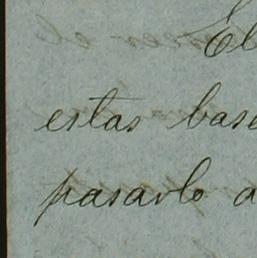 El
estas bas
pasarlo a